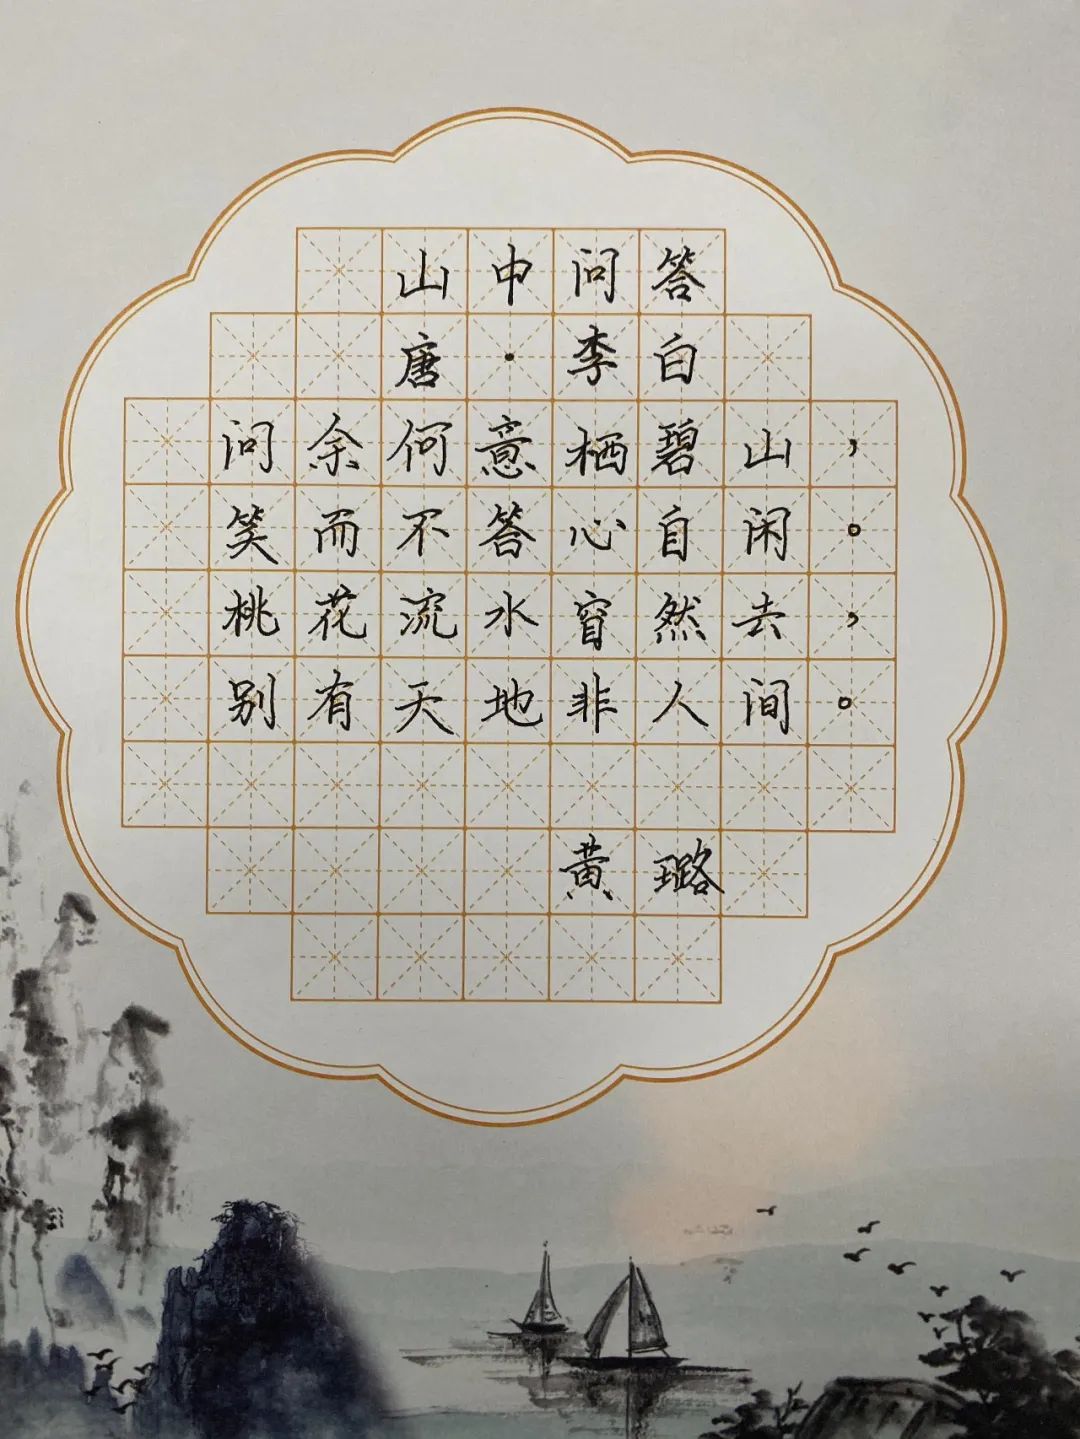 山中问答
唐·李白
问余何意栖碧山，
笑而不答心自闲。
桃花流水窅然去，
别有天地非人间。
黄璐